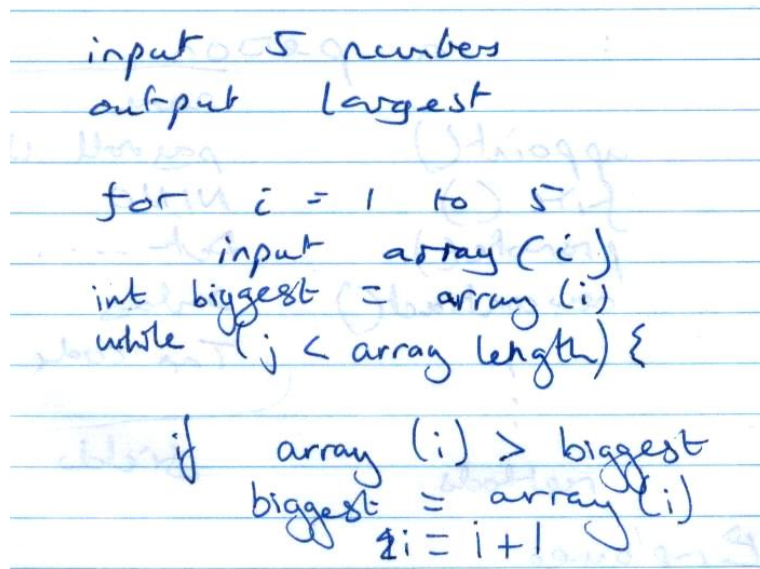 input 5 numbers
output largest
for i = 1 to 5
input array (i)
int biggest = array (i)
while (j < array length) {
if array (i) > biggest
biggest = array (i)
i = i + 1